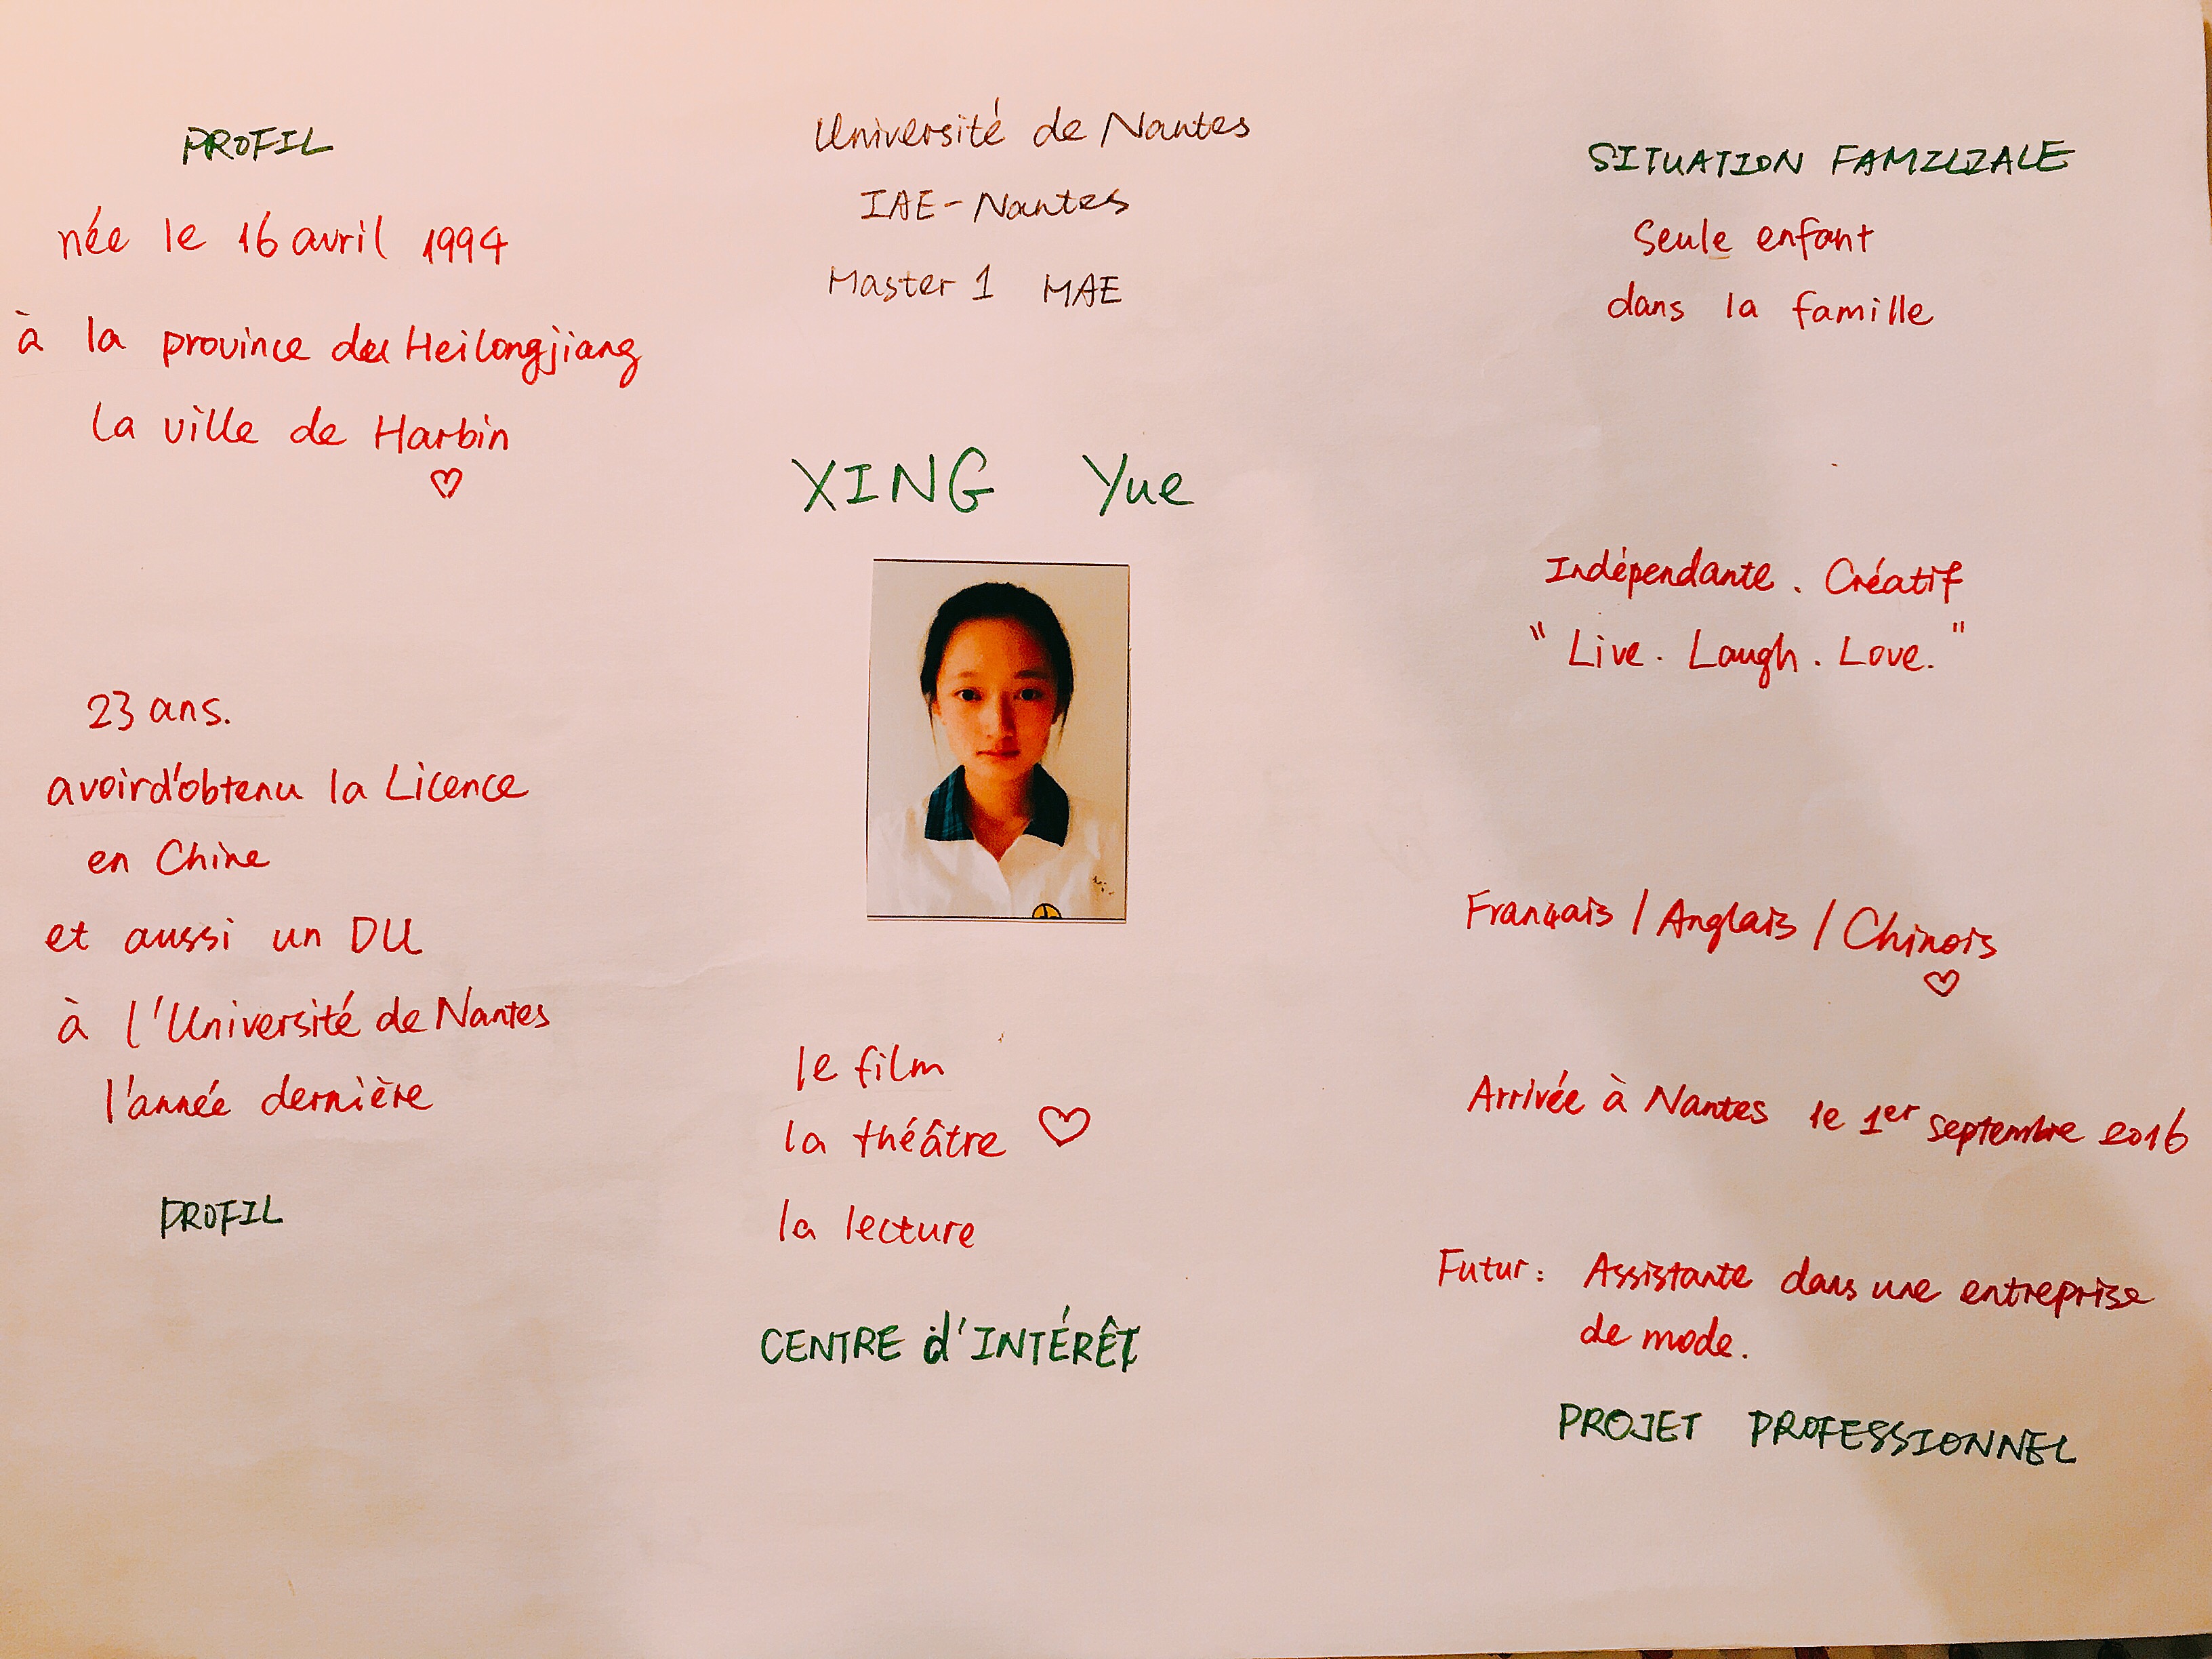 PROFIL
née le 16 avril 1994
à la province du Heilongjiang
la ville de Harbin
23 ans.
avoird'obtenu la Licence
en Chine
et aussi un DU
à l'Université de Nantes
l'année dernière
PROFIL
Université de Nantes
IAE-Nantes
Master 1 MAE
XING Yue
le film
la théâtre
la lecture
CENTRE d'INTÉRÊT
SITUATION FAMILIALE
Seule enfant
dans la famille
Indépendante. Créatif
"Live. Laugh. Love."
Français / Anglais / Chinois
Arrivée à Nantes le 1er septembre 2016
Futur: Assistante dans une entreprise
de mode.
PROJET PROFESSIONNEL